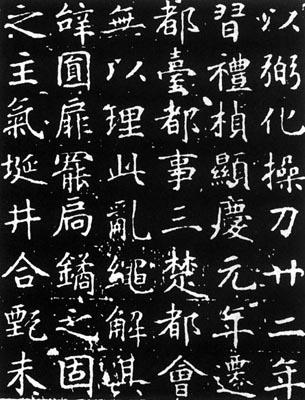 以弼化操刀廿二年
習禮楨顯慶元年遷
都臺都事三楚都會
無以理此亂繩解其
圓扉罷扃鐍之固
之主氣埏井合甄未